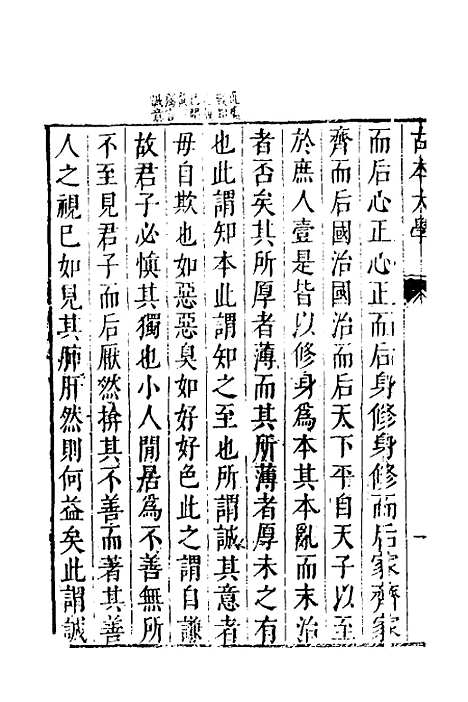 古本大學
一
而后心正心正而后身修身修而后家齊家
齊而后國治國治而后天下平自天子以至
於庶人壹是皆以修身爲本其本亂而末治
者否矣其所厚者薄而其所薄者厚未之有
也此謂知本此謂知之至也所謂誠其意者
毋自欺也如惡惡臭如好好色此之謂自謙
故君子必慎其獨也小人閒居爲不善無所
不至見君子而后厭然揜其不善而著其善
人之視已如見其肺肝然則何益矣此謂誠